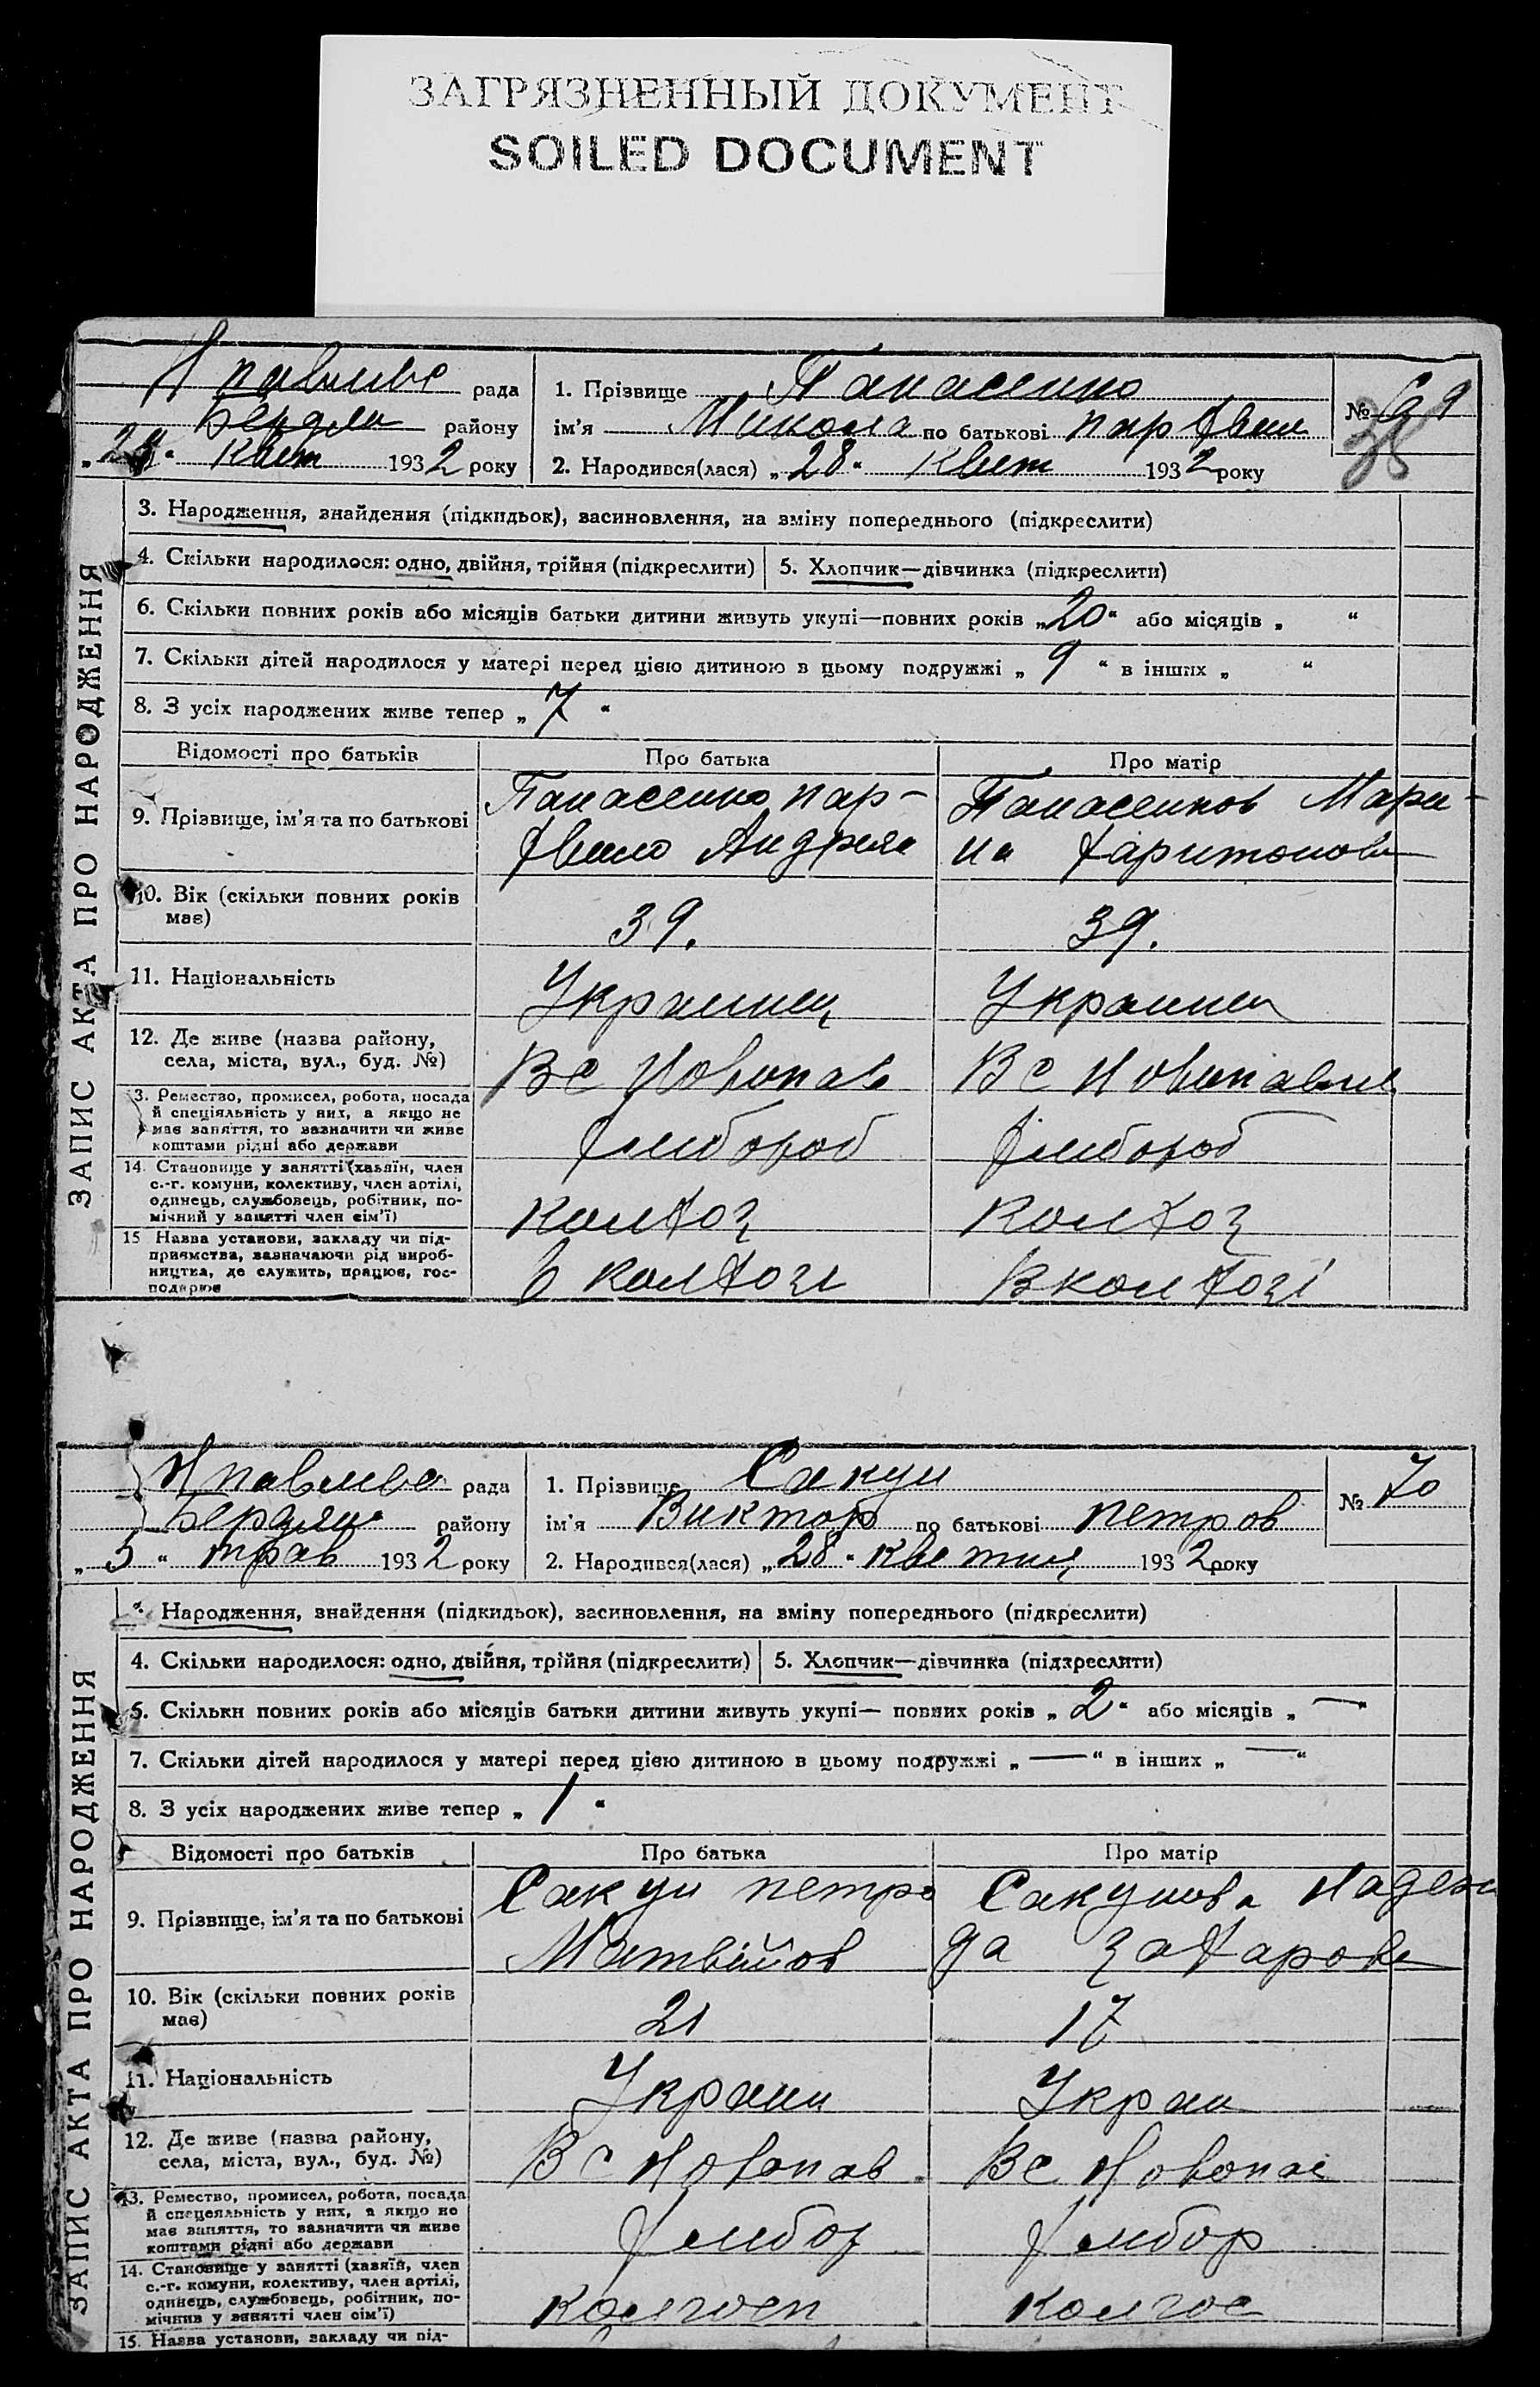 ЗАГРЯЗНЕННЫЙ ДОКУМЕНТ
SOILED DOCUMENT
Нпавливс рада
Бердян району
„29“ Квіт 1932 року
1. Прізвище Панасенко
ім'я Микола по батькові парфван
2. Народився(лася) „28“ Квіт 1932 року
№ 69
38
ЗАПИС АКТА ПРО НАРОДЖЕННЯ
3. Народження, знайдення (підкидьок), засиновлення, на зміну попереднього (підкреслити)
4. Скільки народилося: одно, двійня, трійня (підкреслити) 5. Хлопчик—дівчинка (підкреслити)
6. Скільки повних років або місяців батьки дитини живуть укупі—повних років „20“ або місяців „ “
7. Скільки дітей народилося у матері перед цією дитиною в цьому подружжі „ 9 “ в інших „ “
8. З усіх народжених живе тепер „ 7 “
Відомості про батьків Про батька Про матір
9. Прізвище, ім'я та по батькові
Панасенко пар-
Андрея
Панасенков Мари-
на Харитонова
10. Вік (скільки повних років
має)
39. 39.
11. Національність Украинец Украин
12. Де живе (назва району,
села, міста, вул., буд. №)
ВС Новопав ВС Новопавлив
13. Ремество, промисел, робота, посада
й спеціяльність у них, а якщо не
має заняття, то зазначити чи живе
коштами рідні або держави
хлибороб хлибороб
14. Становище у занятті (хазяїн, член
с.-г. комуни, колективу, член артілі,
одинець, службовець, робітник, по-
мічний у занятті член сім'ї)
колхоз колхоз
15 Назва установи, закладу чи під-
приємства, зазначаючи рід вироб-
ництва, де служить, працює, гос-
подарює
В колхозі В колхозі
Нпавливс рада
Бердян району
„5“ трав 1932 року
1. Прізвище Сакун
ім'я Виктор по батькові петров
2. Народився(лася) „28“ квітня 1932 року
№ 70
ЗАПИС АКТА ПРО НАРОДЖЕННЯ
Народження, знайдення (підкидьок), засиновлення, на зміну попереднього (підкреслити)
4. Скільки народилося: одно, двійня, трійня (підкреслити) 5. Хлопчик—дівчинка (підкреслити)
6. Скільки повних років або місяців батьки дитини живуть укупі— повних років „ 2 “ або місяців „ — “
7. Скільки дітей народилося у матері перед цією дитиною в цьому подружжі „ — “ в інших „ — “
8. З усіх народжених живе тепер „ 1 “
Відомості про батьків Про батька Про матір
9. Прізвище, ім'я та по батькові
Сакун петро
Матвійов
Сакунова Надеж
да Захарова
10. Вік (скільки повних років
має)
21 17
11. Національність Украин Украи
12. Де живе (назва району,
села, міста, вул., буд. №)
ВС Новопав ВС Новопав
13. Ремество, промисел, робота, посада
й спецеяльність у них, а якщо не
має заняття, то зазначити чи живе
коштами рідні або держави
хлибор хлибор
14. Становище у занятті (хазяїн, член
с.-г. комуни, колективу, член артілі,
одинець, службовець, робітник, по-
мічнив у занятті член сім'ї)
колгосп колгос
15. Назва установи, закладу чи під-